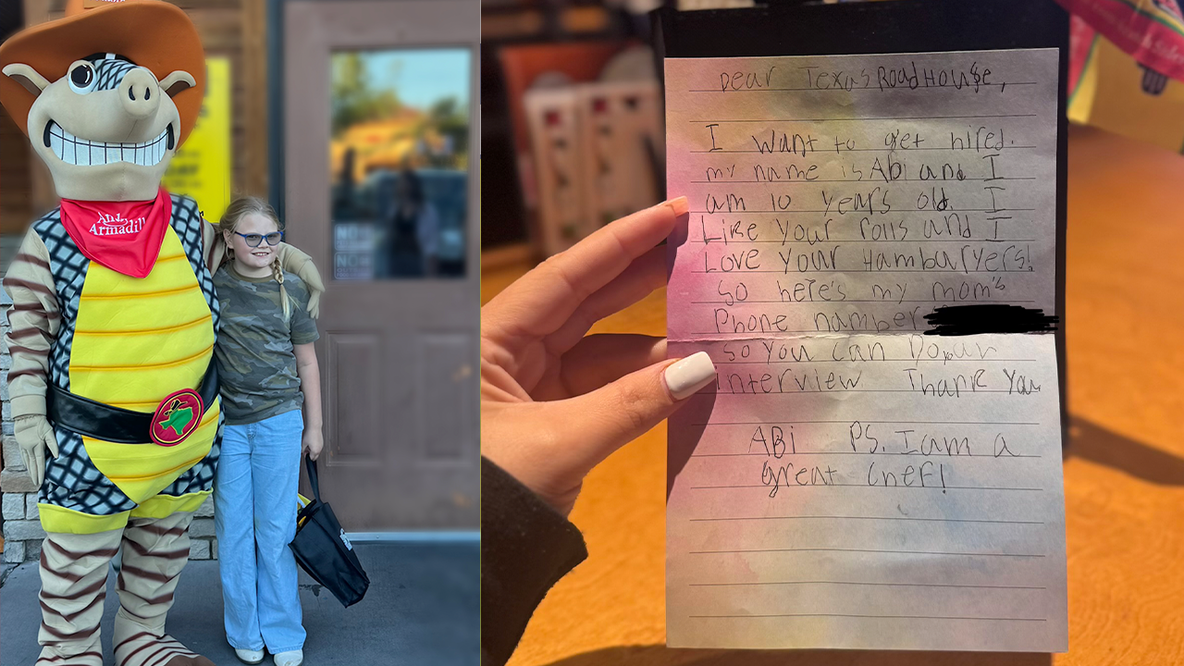 Andy
Armadill
Dear TexasRoadHouse,
I want to get hired.
my name is Abi and I
am 10 years old. I
Like your rolls and I
Love your Hamburgers!
so here's my mom's
Phone number
so you can Do our
interview Thank You
ABi PS. I am a
great chef!